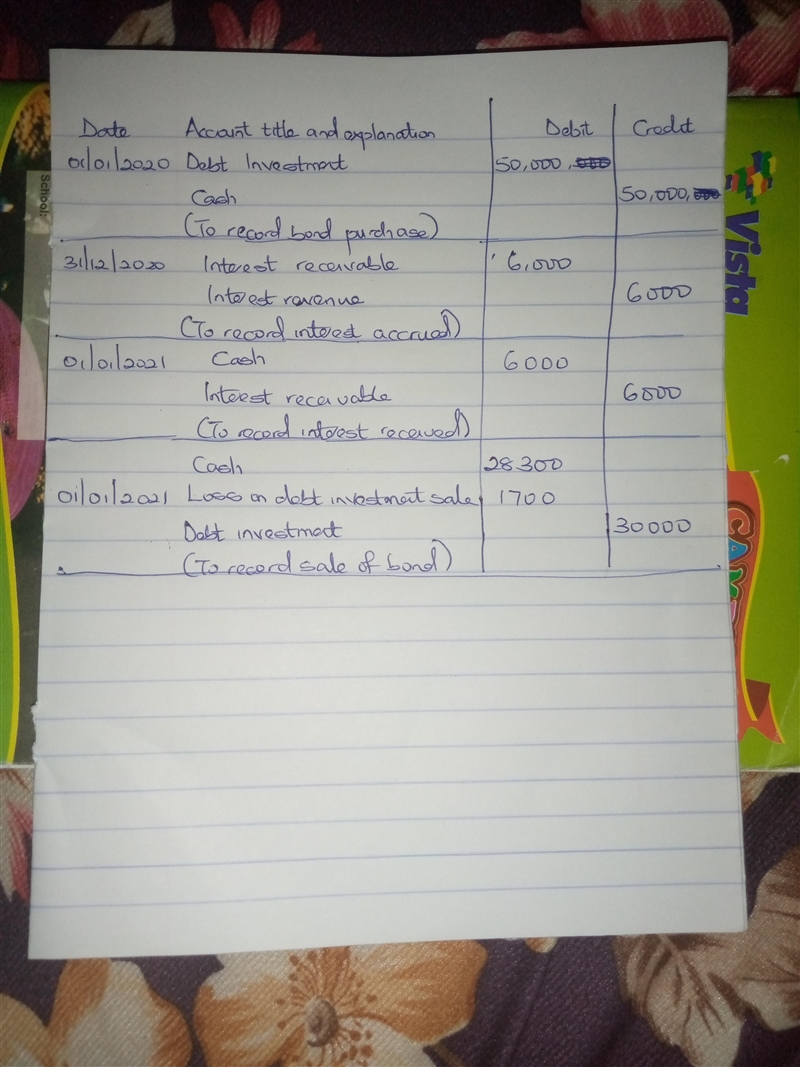 Date Account title and explanation Debit Credit
01/01/2020 Debt Investment 50,000,
Cash 50,000,
(To record bond purchase)
31/12/2020 Interest receivable 6,000
Interest revenue 6000
(To record interest accrued)
01/01/2021 Cash 6000
Interest receivable 6000
(To record interest received)
Cash 28300
01/01/2021 Loss on debt investment sale 1700
Debt investment 30000
(To record sale of bond)
School:
Vista